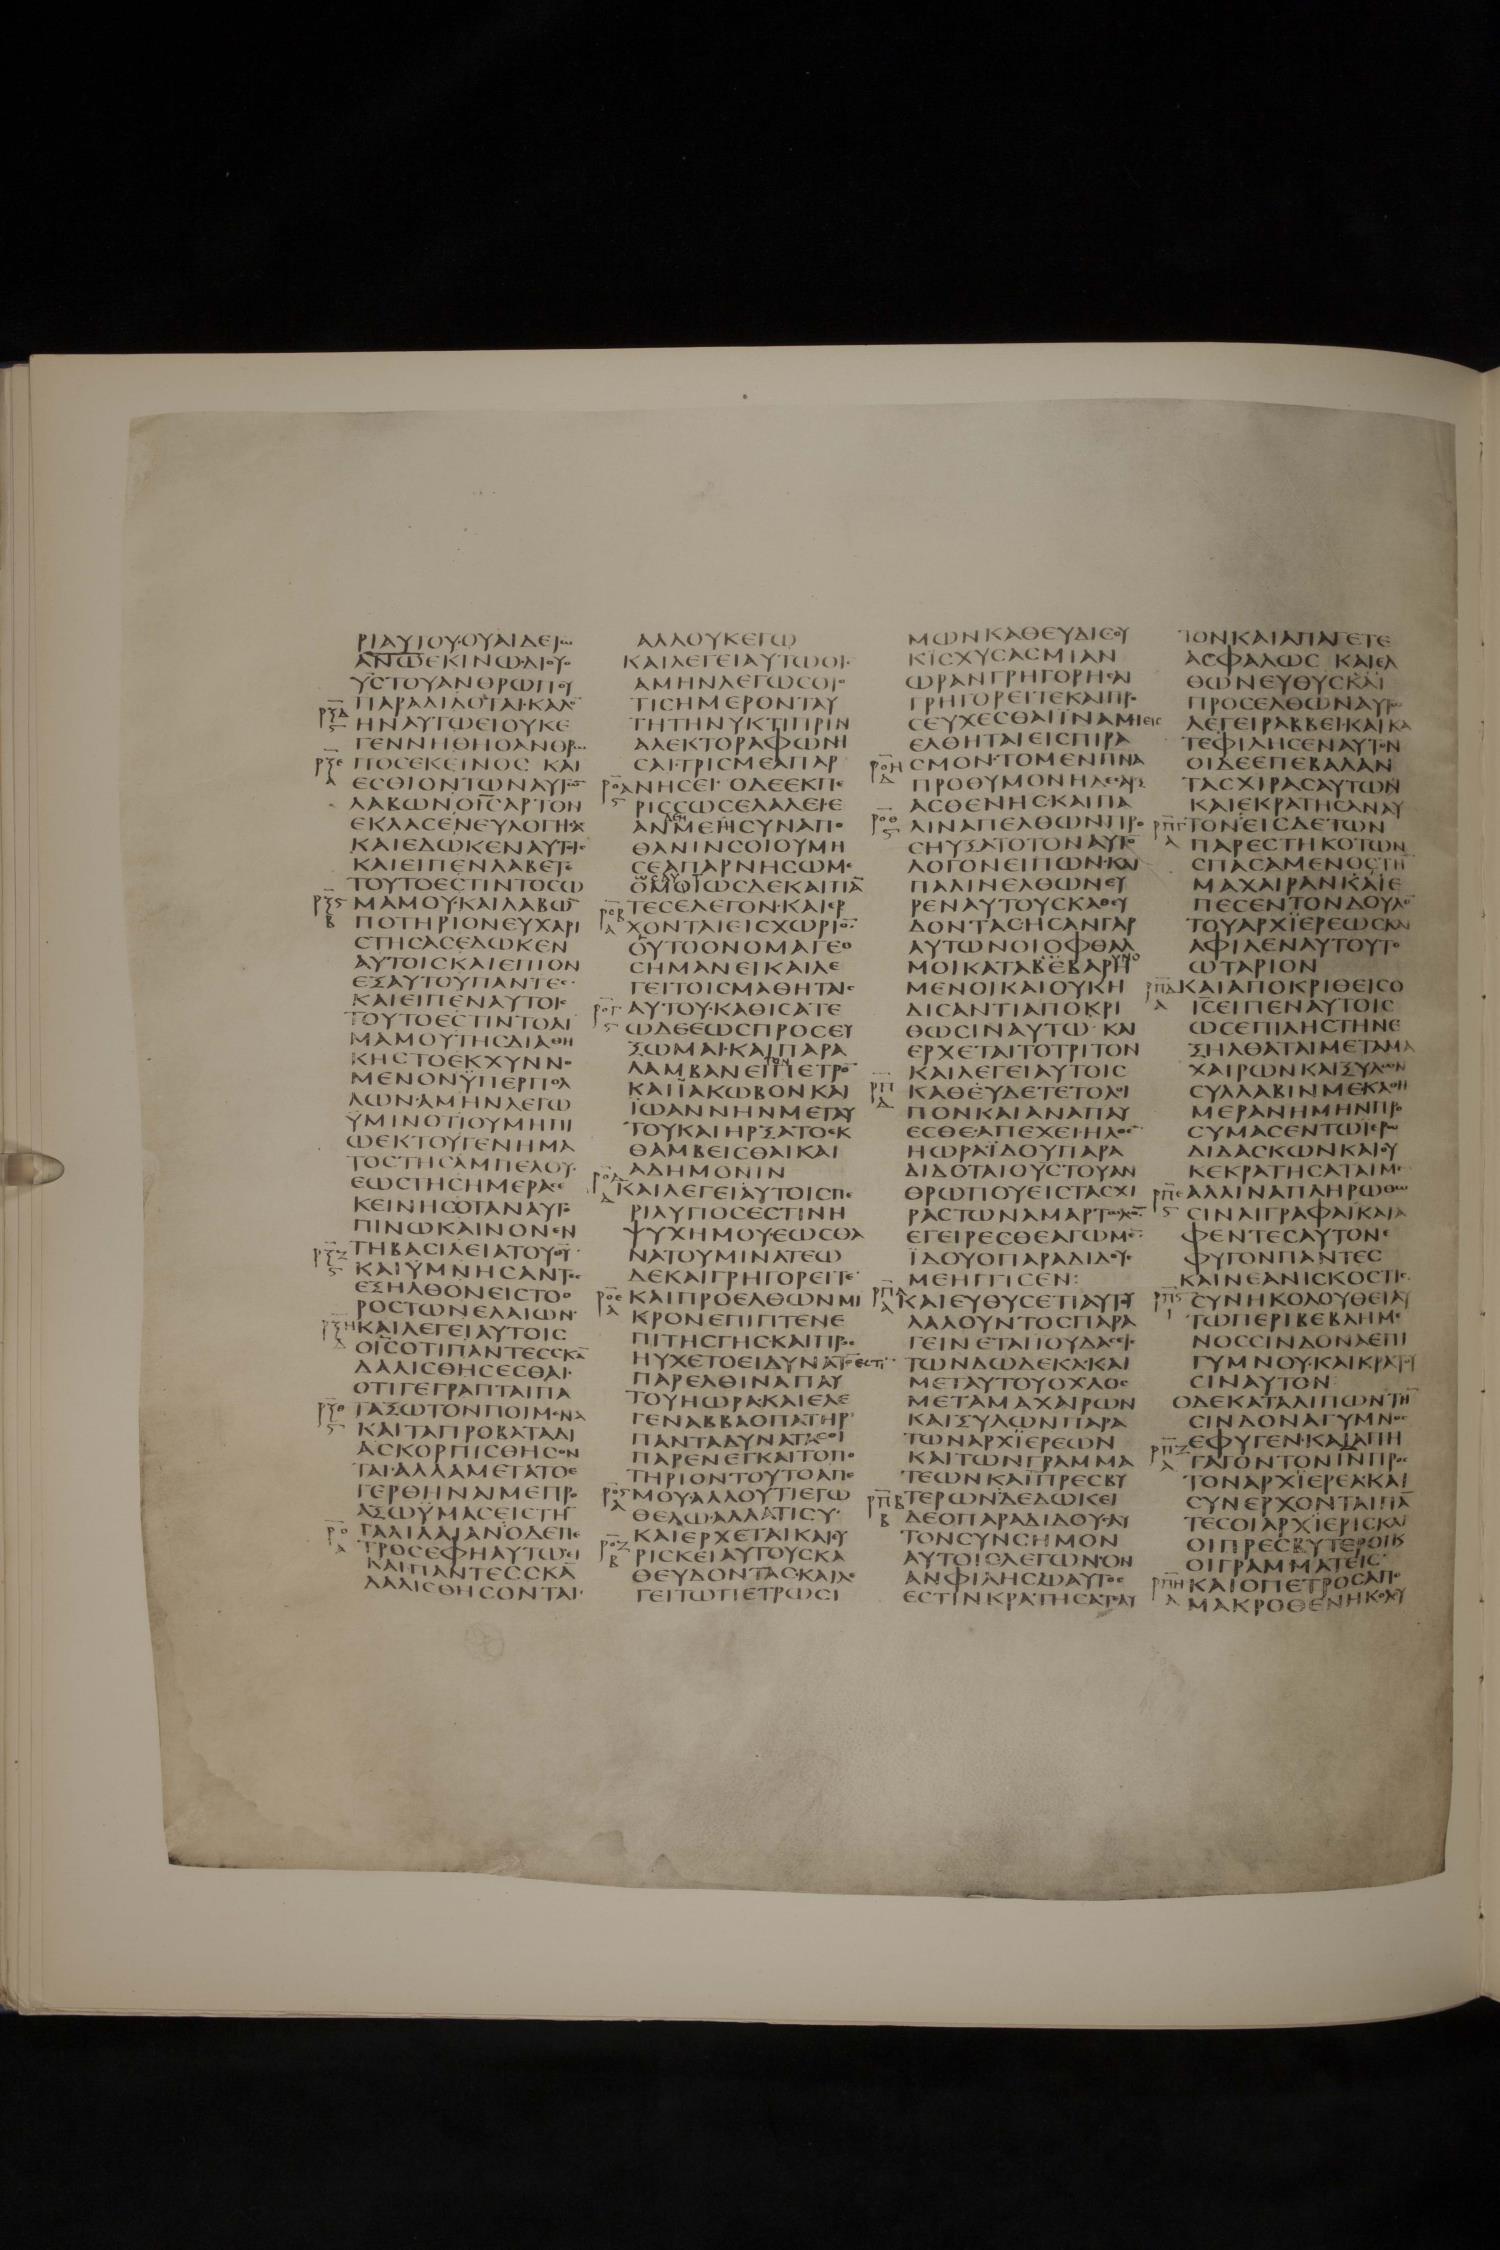 ΡΙΑΥΤΟΥ·ΟΥΑΙΔΕΤω
ΑΝΩΕΚΙΝΩ·ΔΙΟΥ
ΥΣΤΟΥΑΝΘΡΩΠΟΥ
ΠΑΡΑΔΙΔΟΤΑΙ·ΚΑΛΟ
ΗΝΑΥΤΩΕΙΟΥΚΕ
ΓΕΝΝΗΘΗΟΑΝΘΡω
ΠΟΣΕΚΕΙΝΟΣ ΚΑΙ
ΕΣΘΙΟΝΤΩΝΑΥΤω
ΛΑΒΩΝΟΙΣΑΡΤΟΝ
ΕΚΛΑΣΕΝΕΥΛΟΓΗΣΑ
ΚΑΙΕΔΩΚΕΝΑΥΤΟΙ
ΚΑΙΕΙΠΕΝΛΑΒΕΤΕ
ΤΟΥΤΟΕΣΤΙΝΤΟΣΩ
ΜΑΜΟΥ·ΚΑΙΛΑΒΩ
ΠΟΤΗΡΙΟΝΕΥΧΑΡΙ
ΣΤΗΣΑΣΕΔΩΚΕΝ
ΑΥΤΟΙΣΚΑΙΕΠΙΟΝ
ΕΞΑΥΤΟΥΠΑΝΤΕΣ
ΚΑΙΕΙΠΕΝΑΥΤΟΙΣ
ΤΟΥΤΟΕΣΤΙΝΤΟΑΙ
ΜΑΜΟΥΤΗΣΔΙΑΘΗ
ΚΗΣΤΟΕΚΧΥΝΝΟ
ΜΕΝΟΝΫΠΕΡΠΟΛ
ΛΩΝ·ΑΜΗΝΛΕΓΩ
ΫΜΙΝΟΤΙΟΥΜΗΠΙ
ΩΕΚΤΟΥΓΕΝΗΜΑ
ΤΟΣΤΗΣΑΜΠΕΛΟΥ·
ΕΩΣΤΗΣΗΜΕΡΑΣΕ
ΚΕΙΝΗΣΟΤΑΝΑΥΤΟ
ΠΙΝΩΚΑΙΝΟΝΕΝ
ΤΗΒΑΣΙΛΕΙΑΤΟΥΘΥ
ΚΑΙΫΜΝΗΣΑΝΤΕΣ
ΕΞΗΛΘΟΝΕΙΣΤΟΟ
ΡΟΣΤΩΝΕΛΑΙΩΝ·
ΚΑΙΛΕΓΕΙΑΥΤΟΙΣ
ΟΙΣΟΤΙΠΑΝΤΕΣΣΚΑ
ΔΑΛΙΣΘΗΣΕΣΘΑΙ·
ΟΤΙΓΕΓΡΑΠΤΑΙΠΑ
ΤΑΞΩΤΟΝΠΟΙΜΕΝΑ
ΚΑΙΤΑΠΡΟΒΑΤΑΔΙ
ΑΣΚΟΡΠΙΣΘΗΣΟΝ
ΤΑΙ·ΑΛΛΑΜΕΤΑΤΟΕ
ΓΕΡΘΗΝΑΙΜΕΠΡΟ
ΑΞΩΫΜΑΣΕΙΣΤΗ
ΓΑΛΙΛΑΙΑΝ·ΟΔΕΠΕ
ΤΡΟΣΕΦΗΑΥΤΩΕΙ
ΚΑΙΠΑΝΤΕΣΣΚΑ
ΔΑΛΙΣΘΗΣΟΝΤΑΙ·
ΑΛΛΟΥΚΕΓΩ
ΚΑΙΛΕΓΕΙΑΥΤΩΟΙΣ
ΑΜΗΝΛΕΓΩΣΟΙΟ
ΤΙΣΗΜΕΡΟΝΤΑΥ
ΤΗΤΗΝΥΚΤΙΠΡΙΝ
ΑΛΕΚΤΟΡΑΦΩΝΗ
ΣΑΙ·ΤΡΙΣΜΕΑΠΑΡ
ΝΗΣΕΙ· ΟΔΕΕΚΠΕ
ΡΙΣΣΩΣΕΛΑΛΕΙ·Ε
ΑΝΜΕΗΣΥΝΑΠΟ
ΘΑΝΙΝΣΟΙΟΥΜΗ
ΣΕΑΠΑΡΝΗΣΩΜΕ
ΟΜΟΙΩΣΔΕΚΑΙΠΑ
ΤΕΣΕΛΕΓΟΝ·ΚΑΙΕΡ
ΧΟΝΤΑΙΕΙΣΧΩΡΙΟ
ΟΥΤΟΟΝΟΜΑΓΕΘ
ΣΗΜΑΝΕΙΚΑΙΛΕ
ΓΕΙΤΟΙΣΜΑΘΗΤΑΙΣ
ΑΥΤΟΥ·ΚΑΘΙΣΑΤΕ
ΩΔΕΕΩΣΠΡΟΣΕΥ
ΞΩΜΑΙ·ΚΑΙΠΑΡΑ
ΛΑΜΒΑΝΕΙΠΕΤΡΟ
ΚΑΙΪΑΚΩΒΟΝΚΑΙ
ΪΩΑΝΝΗΝΜΕΤΑΥ
ΤΟΥΚΑΙΗΡΞΑΤΟΕΚ
ΘΑΜΒΕΙΣΘΑΙΚΑΙ
ΑΔΗΜΟΝΙΝ
ΚΑΙΛΕΓΕΙΑΥΤΟΙΣΠΕ
ΡΙΛΥΠΟΣΕΣΤΙΝΗ
ΨΥΧΗΜΟΥ·ΕΩΣΘΑ
ΝΑΤΟΥΜΙΝΑΤΕΩ
ΔΕΚΑΙΓΡΗΓΟΡΕΙΤΕ·
ΚΑΙΠΡΟΕΛΘΩΝΜΙ
ΚΡΟΝΕΠΙΠΤΕΝΕ
ΠΙΤΗΣΓΗΣΚΑΙΠΡΟΣ
ΗΥΧΕΤΟΕΙΔΥΝΑΤΟΕΣΤΙ
ΠΑΡΕΛΘΙΝΑΠΑΥ
ΤΟΥΗΩΡΑ·ΚΑΙΕΛΕ
ΓΕΝΑΒΒΑΟΠΑΤΗΡ
ΠΑΝΤΑΔΥΝΑΤΑΣΟΙ
ΠΑΡΕΝΕΓΚΑΙΤΟΠΟ
ΤΗΡΙΟΝΤΟΥΤΟΑΠΕ
ΜΟΥ·ΑΛΛΟΥΤΙΕΓΩ
ΘΕΛΩ·ΑΛΛΑΤΙΣΥ·
ΚΑΙΕΡΧΕΤΑΙΚΑΙΕΥ
ΡΙΣΚΕΙΑΥΤΟΥΣΚΑ
ΘΕΥΔΟΝΤΑΣ·ΚΑΙΛΕ
ΓΕΙΤΩΠΕΤΡΩΣΙ
ΜΩΝΚΑΘΕΥΔΙΣΟΥ
ΚΙΣΧΥΣΑΣΜΙΑΝ
ΩΡΑΝΓΡΗΓΟΡΗΣΑΙ
ΓΡΗΓΟΡΕΙΤΕΚΑΙΠΡΟ
ΣΕΥΧΕΣΘΑΙΪΝΑΜΗΕΙΣ
ΕΛΘΗΤΑΙΕΙΣΠΙΡΑ
ΣΜΟΝ·ΤΟΜΕΝΠΝΑ
ΠΡΟΘΥΜΟΝΗΔΕΣΑΡΞ
ΑΣΘΕΝΗΣ·ΚΑΙΠΑ
ΛΙΝΑΠΕΛΘΩΝΠΡΟ
ΣΗΥΞΑΤΟΤΟΝΑΥΤΟ
ΛΟΓΟΝΕΙΠΩΝ·ΚΑΙ
ΠΑΛΙΝΕΛΘΩΝΕΥ
ΡΕΝΑΥΤΟΥΣΚΑΘΕΥ
ΔΟΝΤΑΣΗΣΑΝΓΑΡ
ΑΥΤΩΝΟΙΟΦΘΑΛ
ΜΟΙΚΑΤΑΒΕΒΑΡΗ
ΜΕΝΟΙΚΑΙΟΥΚΗ
ΔΙΣΑΝΤΙΑΠΟΚΡΙ
ΘΩΣΙΝΑΥΤΩ· ΚΑΙ
ΕΡΧΕΤΑΙΤΟΤΡΙΤΟΝ
ΚΑΙΛΕΓΕΙΑΥΤΟΙΣ
ΚΑΘΕΥΔΕΤΕΤΟΛΟΙ
ΠΟΝΚΑΙΑΝΑΠΑΥ
ΕΣΘΕ·ΑΠΕΧΕΙ·ΗΛΘΕ
ΗΩΡΑ·ΪΔΟΥΠΑΡΑ
ΔΙΔΟΤΑΙΟΥΣΤΟΥΑΝ
ΘΡΩΠΟΥΕΙΣΤΑΣΧΙ
ΡΑΣΤΩΝΑΜΑΡΤΩΛΩ
ΕΓΕΙΡΕΣΘΕΑΓΩΜΕ
ΪΔΟΥΟΠΑΡΑΔΙΔΟΥΣ
ΜΕΗΓΓΙΣΕΝ:
ΚΑΙΕΥΘΥΣΕΤΙΑΥΤΟΥ
ΛΑΛΟΥΝΤΟΣΠΑΡΑ
ΓΕΙΝΕΤΑΙΙΟΥΔΑΣΕΙΣ
ΤΩΝΔΩΔΕΚΑ·ΚΑΙ
ΜΕΤΑΥΤΟΥΟΧΛΟΣ
ΜΕΤΑΜΑΧΑΙΡΩΝ
ΚΑΙΞΥΛΩΝΠΑΡΑ
ΤΩΝΑΡΧΪΕΡΕΩΝ
ΚΑΙΤΩΝΓΡΑΜΜΑ
ΤΕΩΝΚΑΙΠΡΕΣΒΥ
ΤΕΡΩΝ·ΔΕΔΩΚΕΙ
ΔΕΟΠΑΡΑΔΙΔΟΥΣΑΥ
ΤΟΝΣΥΝΣΗΜΟΝ
ΑΥΤΟΙΣΛΕΓΩΝ·ΟΝ
ΑΝΦΙΛΗΣΩΑΥΤΟΣ
ΕΣΤΙΝΚΡΑΤΗΣΑΤΑΙΑΥ
ΤΟΝΚΑΙΑΠΑΓΕΤΕ
ΑΣΦΑΛΩΣ ΚΑΙΕΛ
ΘΩΝΕΥΘΥΣΚΑΙ
ΠΡΟΣΕΛΘΩΝΑΥΤω
ΛΕΓΕΙΡΑΒΒΕΙ·ΚΑΙΚΑ
ΤΕΦΙΛΗΣΕΝΑΥΤΟΝ
ΟΙΔΕΕΠΕΒΑΛΑΝ
ΤΑΣΧΙΡΑΣΑΥΤΩΝ
ΚΑΙΕΚΡΑΤΗΣΑΝΑΥ
ΤΟΝ·ΕΙΣΔΕΤΩΝ
ΠΑΡΕΣΤΗΚΟΤΩΝ
ΣΠΑΣΑΜΕΝΟΣΤΗ
ΜΑΧΑΙΡΑΝΚΑΙΕ
ΠΕΣΕΝΤΟΝΔΟΥΛΟ
ΤΟΥΑΡΧΪΕΡΕΩΣΚΑΙ
ΑΦΙΛΕΝΑΥΤΟΥΤΟ
ΩΤΑΡΙΟΝ
ΚΑΙΑΠΟΚΡΙΘΕΙΣΟ
ΙΣΕΙΠΕΝΑΥΤΟΙΣ
ΩΣΕΠΙΛΗΣΤΗΝΕ
ΞΗΛΘΑΤΑΙΜΕΤΑΜΑ
ΧΑΙΡΩΝΚΑΙΞΥΛΩΝ
ΣΥΛΛΑΒΙΝΜΕΚΑΘΗ
ΜΕΡΑΝΗΜΗΝΠΡΟ
ΣΥΜΑΣΕΝΤΩΙΕΡω
ΔΙΔΑΣΚΩΝΚΑΙΟΥ
ΚΕΚΡΑΤΗΣΑΤΑΙΜΕ
ΑΛΛΙΝΑΠΛΗΡΩΘω
ΣΙΝΑΙΓΡΑΦΑΙΚΑΙΑ
ΦΕΝΤΕΣΑΥΤΟΝΕ
ΦΥΓΟΝΠΑΝΤΕΣ
ΚΑΙΝΕΑΝΙΣΚΟΣΤΙΣ
ΣΥΝΗΚΟΛΟΥΘΕΙΑΥ
ΤΩΠΕΡΙΒΕΒΛΗΜΕ
ΝΟΣΣΙΝΔΟΝΑΕΠΙ
ΓΥΜΝΟΥ·ΚΑΙΚΡΑΤΟΥ
ΣΙΝΑΥΤΟΝ
ΟΔΕΚΑΤΑΛΙΠΩΝΤΗ
ΣΙΝΔΟΝΑΓΥΜΝΟΣ
ΕΦΥΓΕΝ·ΚΑΙΑΠΗ
ΓΑΓΟΝΤΟΝΙΝΠΡΟΣ
ΤΟΝΑΡΧΪΕΡΕΑ·ΚΑΙ
ΣΥΝΕΡΧΟΝΤΑΙΠΑ
ΤΕΣΟΙΑΡΧΪΕΡΙΣΚΑΙ
ΟΙΠΡΕΣΒΥΤΕΡΟΙΚ
ΟΙΓΡΑΜΜΑΤΕΙΣ·
ΚΑΙΟΠΕΤΡΟΣΑΠΟ
ΜΑΚΡΟΘΕΝΗΚΟΛΟΥ